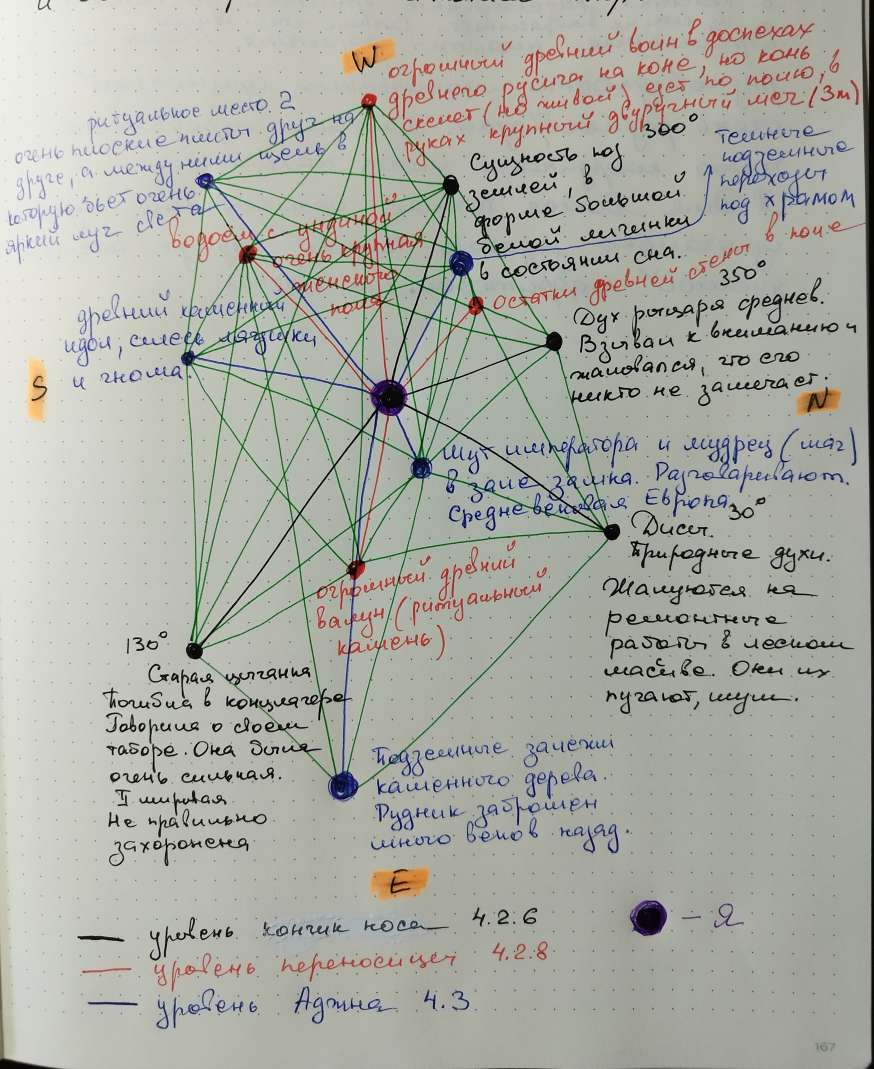 W
огромный древний воин в доспехах
древнего русича на коне, но конь
скелет (но живой) едет по полю, в
руках крупный двуручный меч (3m)
ритуальное место 2
очень плоские плиты друг на
друге, а между ними щель в
которую бьет очень
яркий луч света
300°
Сущность под
землей, в
форме большой
белой личинки
в состоянии сна.
темные
подземные
переходы
под храмом
водоем с ундиной
очень крупная
женского
пола
Остатки древней стены в поле
древний каменный
идол, смесь лягушки
и гнома.
350°
Дух рыцаря среднев.
Взывал к вниманию и
жаловался, что его
никто не замечает.
S
N
Шут императора и мудрец (маг)
в зале замка. Разговаривают.
Средневековая Европа
30°
Природные духи.
Жалуются на
ремонтные
работы в лесном
массиве. Они их
пугают, шум.
огромный древний
валун (ритуальный
камень)
130°
Старая цыганка
Погибла в концлагере
Говорила о своем
таборе. Она была
очень сильная.
II мировая
Не правильно
захоронена
Подземные залежи
каменного дерева.
Рудник заброшен
много веков назад.
E
уровень кончик носа 4.2.6
— Я
уровень переносицы 4.2.8
уровень Аджна 4.3
167